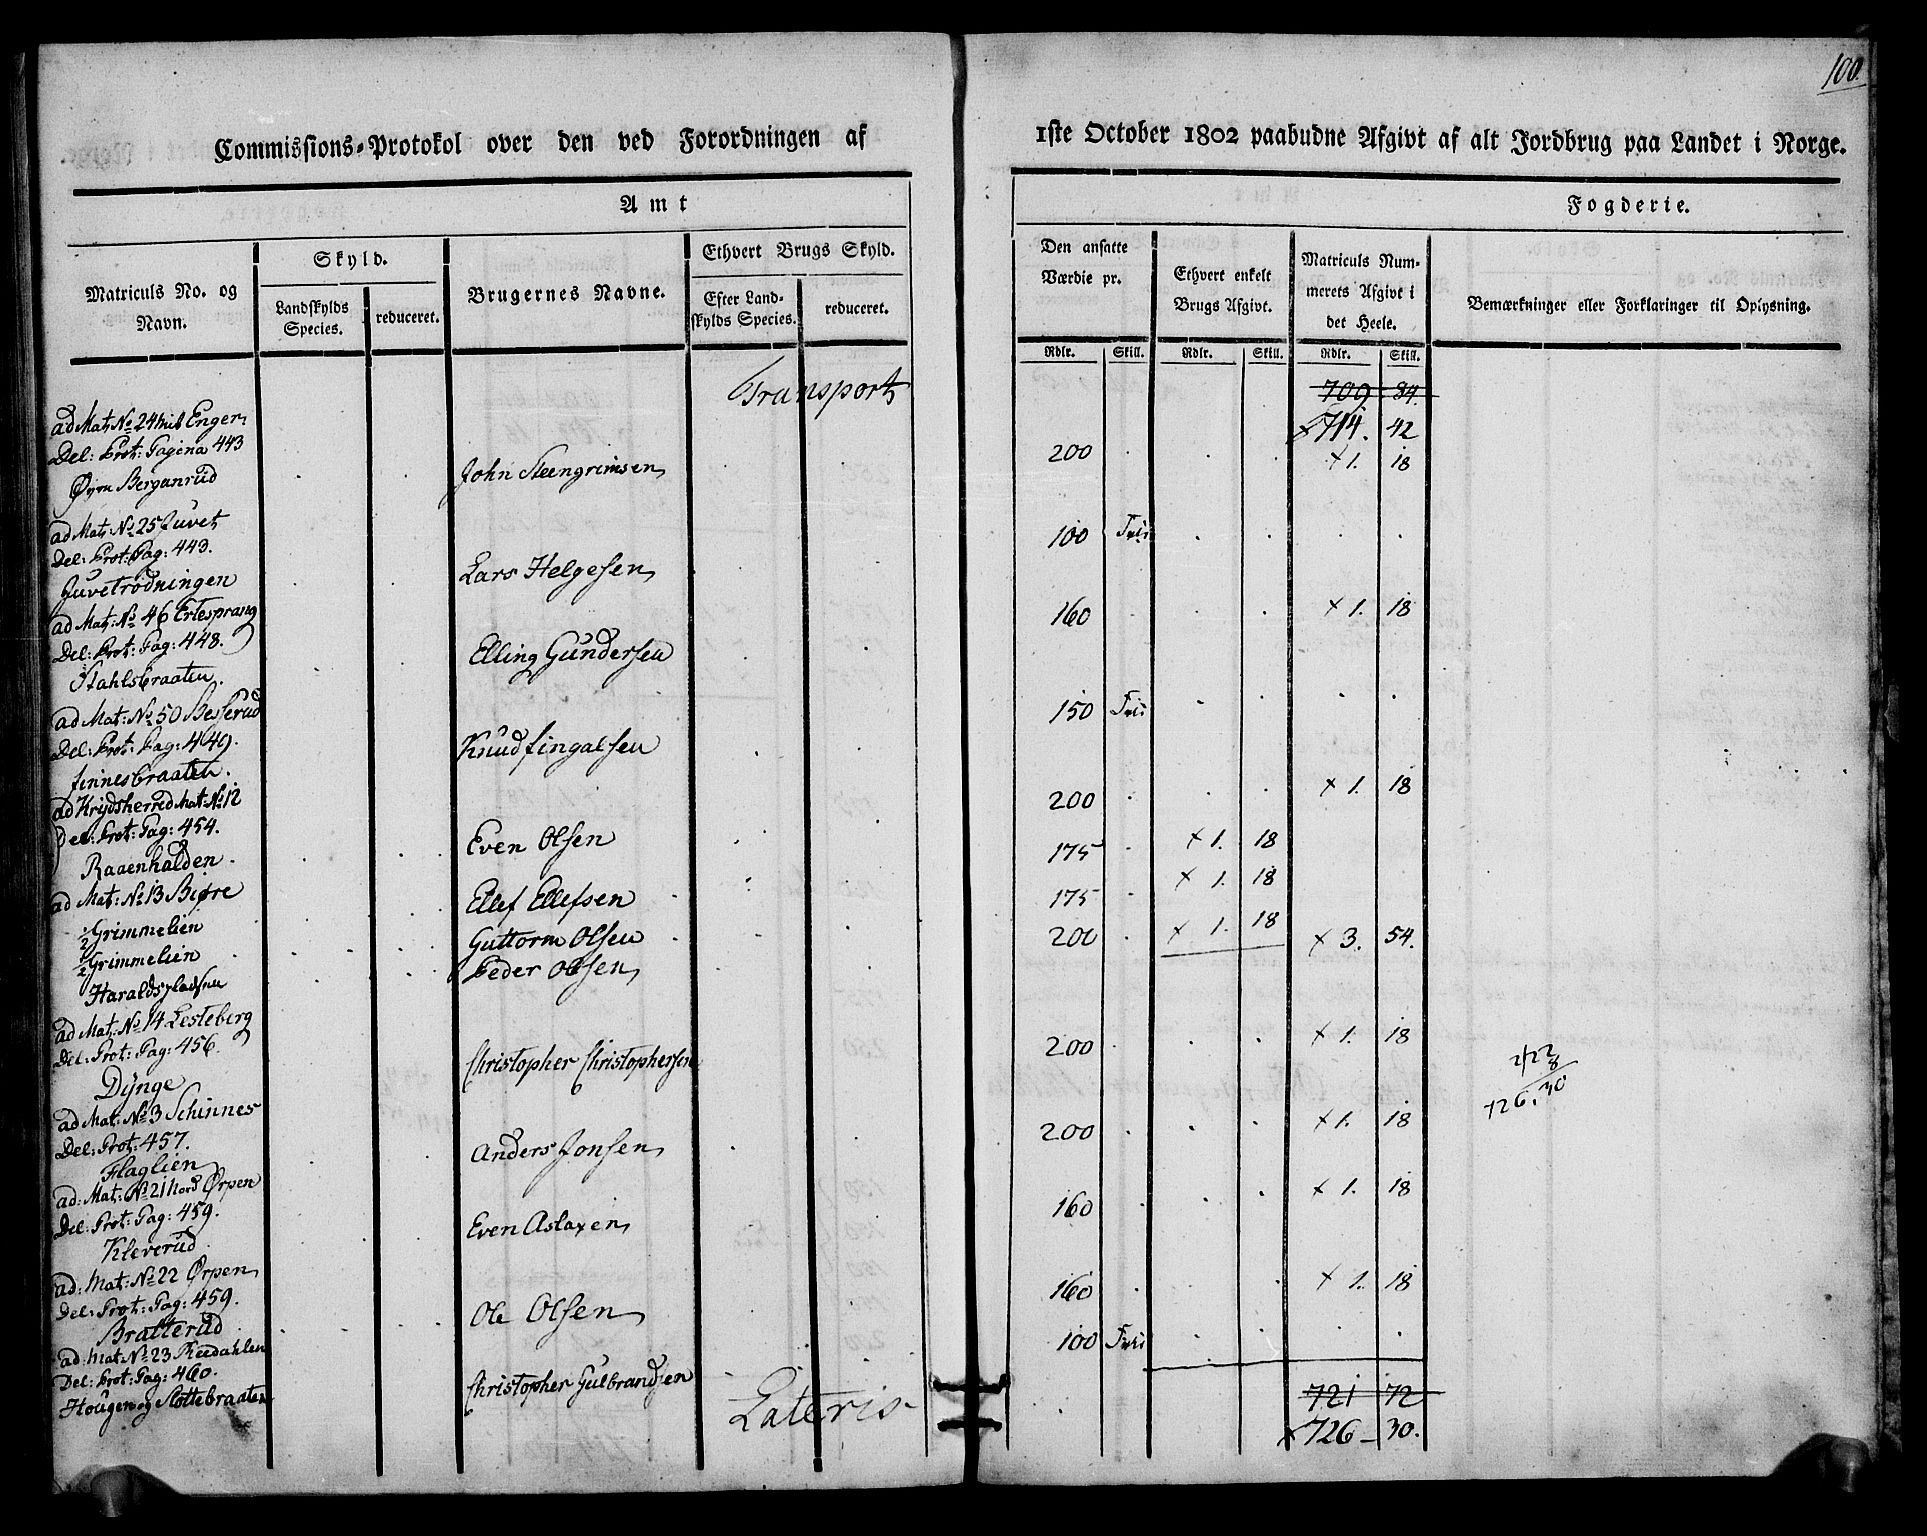 100.
Commissions-Protokol over den ved Forordningen af 1ste October 1802 paabudne Afgivt af alt Jordbrug paa Landet i Norge.
Amt Fogderie.
Matriculs No. og Navn.
Skyld.
Landskylds Species.
reduceret.
Brugernes Navne.
Ethvert Brugs Skyld.
Efter Landskylds Species.
reduceret.
Den ansatte Værdie pr.
Ethvert enkelt Brugs Afgivt.
Matriculs Nummerets Afgivt i det Heele.
Bemærkninger eller Forklaringer til Oplysning.
Rdlr. Skill. Rdlr. Skill. Rdlr. Skill.
Transport 709 - 84.
x 714. 42
ad Mat: No 24 Enger
Del: Prot: Pagina 443
Øvre Berganrud John Steengrimsen 200 x 1. 18
ad Mat: No 25 Juvet
Del: Prot: Pag: 443.
Juvetrødningen Lars Helgesen 100 Frii
ad Mat: No 46 Ertesprang
Del: Prot: Pag: 448.
Stahlsbraaten. Elling Gundersen 160 x 1. 18
ad Mat: No 50 Besserud
Del: Prot: Pag: 449.
finnesbraaten. Knud fingalsen 150 Frii
ad Krydsherred Mat: No 12
Del: Prot: Pag: 454.
Raaenhalden. Even Olsen 200 x 1. 18
ad Mat: No 13 Biøre
1/2 Grimmelien Ellef Ellefsen 175 x 1. 18
1/2 Grimmelien Guttorm Olsen 175 x 1. 18
Haraldspladsen Peder Olsen 200 x 1. 18 x 3. 54.
ad Mat: No 14 Lesteberg
Del: Prot: Pag: 456.
Dynge Christopher Christophersen 200 x 1. 18
ad Mat: No 3 Schinnes
Del: Prot: 457.
Flaglien Anders Jonsen 200 x 1. 18
ad: Mat: No 21 Nord Ørpen
Del: Prot: Pag: 459.
Kleverud Even Aslaxen 160 x 1. 18
ad: Mat: No 22 Ørpen
Del: Prot: Pag: 459.
Bratterud Ole Olsen 160 x 1. 18
ad: Mat: No 23 Reedahlen
Del: Prot: Pag: 460.
Hougen og Slottebraaten Christopher Gulbrandsen 100 Frii
726. 30
Lateris 721 72
x 726 - 30.